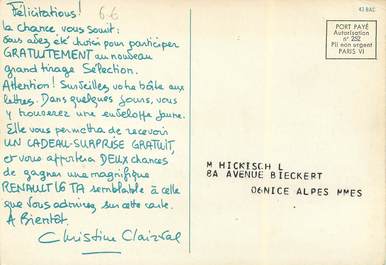 Félicitations!
la chance vous sourit:
vous avez été choisi pour participer
GRATUITEMENT au nouveau
grand tirage Sélection.
Attention! Surveillez votre boîte aux
lettres. Dans quelques jours, vous
y trouverez une enveloppe jaune.
Elle vous permettra de recevoir
UN CADEAU-SURPRISE GRATUIT,
et vous apportera DEUX chances
de gagner une magnifique
RENAULT 16 TA semblable à celle
que vous admirez sur cette carte.
A Bientôt.
Christine Clairval
6.6
43 BAC
PORT PAYÉ
Autorisation
n° 252
Pli non urgent
PARIS VI
M HICKISCH L
8A AVENUE BIECKERT
06NICE ALPES MMES